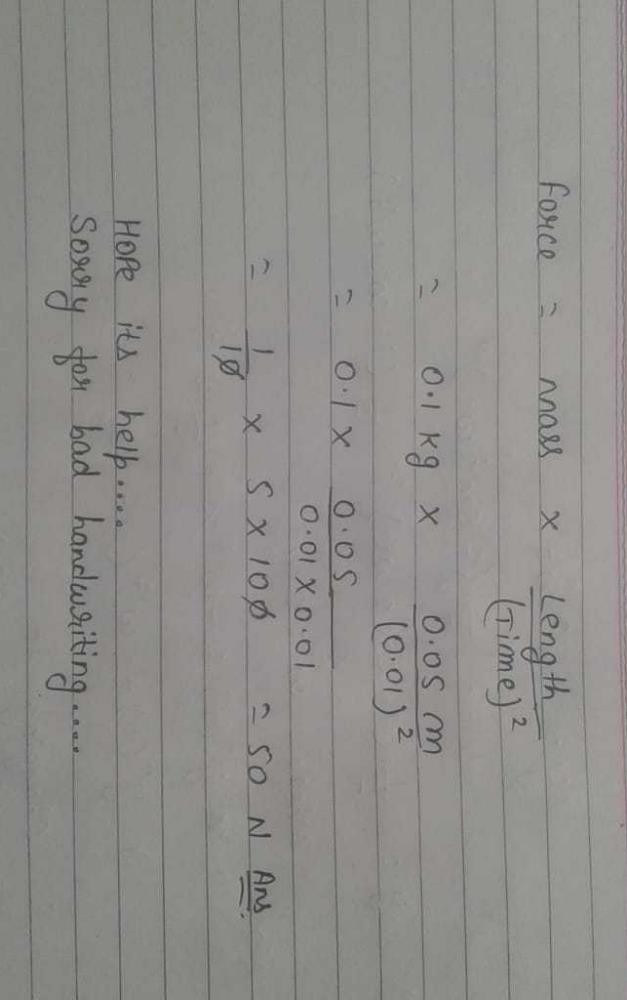 force = mass × Length / (Time)²
= 0.1 kg × 0.05 m / (0.01)²
= 0.1 × 0.05 / 0.01 × 0.01
= 1/10 × 5 × 100 = 50 N Ans.
Hope its help....
Sorry for bad handwriting.....